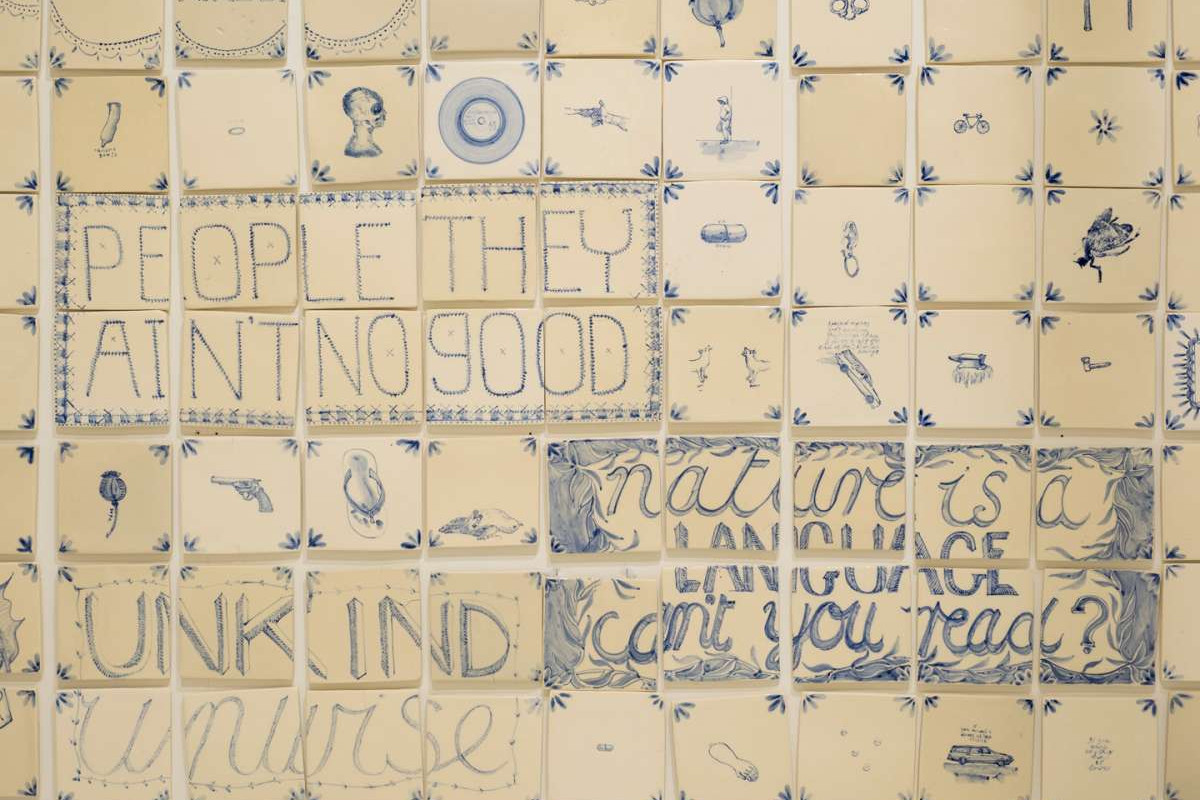 PEOPLE THEY
AIN'T NO GOOD
nature is a
LANGUAGE
can't you read?
UNKIND
unwise